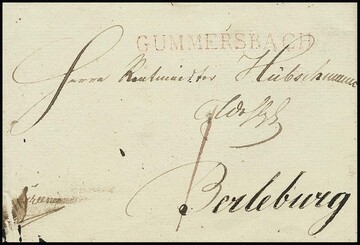 GUMMERSBACH
Herrn Rentmeister Hübschmann
Berleburg